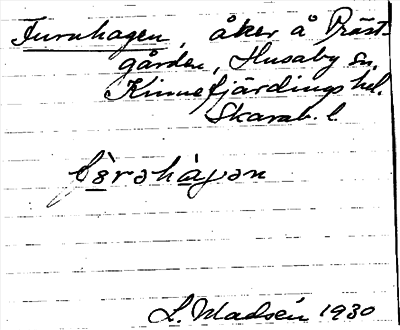 Furuhagen, åker å Präst-
gården, Husaby sn.
Kinnefjärdings hd.
Skarab. l.
L. Madsén 1930